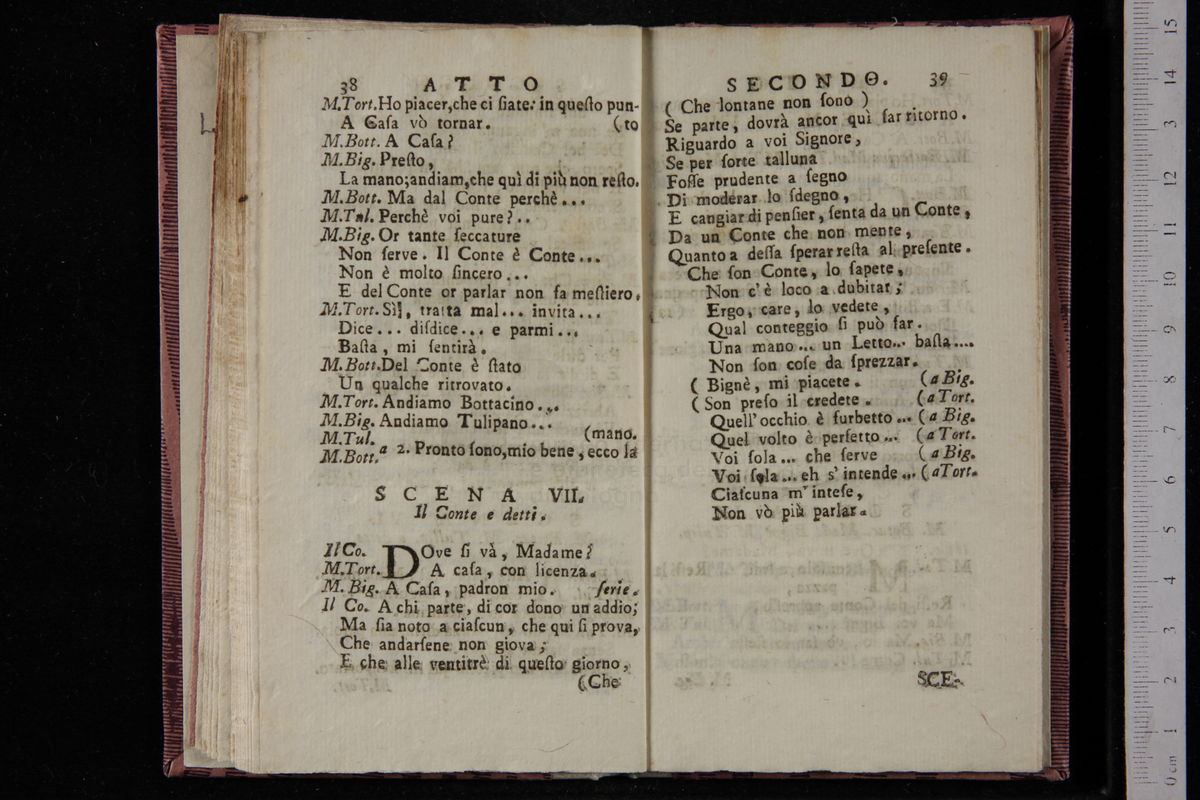 38 ATTO
M.Tort. Ho piacer, che ci ſiate: in queſto pun-
A Caſa vò tornar. (to
M.Bott. A Caſa?
M.Big. Preſto,
La mano; andiam, che quì di più non reſto.
M.Bott. Ma dal Conte perchè...
M.Tul. Perchè voi pure?..
M.Big. Or tante ſeccature
Non ſerve. Il Conte è Conte...
Non è molto ſincero...
E del Conte or parlar non fa meſtiero.
M.Tort. Sì, tratta mal... invita...
Dice... diſdice... e parmi...
Baſta, mi ſentirà.
M.Bott. Del Conte è ſtato
Un qualche ritrovato.
M.Tort. Andiamo Bottacino...
M.Big. Andiamo Tulipano...
M.Tul. (mano.
M.Bott. a 2. Pronto ſono, mio bene, ecco la
SCENA VII.
Il Conte e detti.
Il Co. DOve ſi và, Madame?
M.Tort. A caſa, con licenza.
M. Big. A Caſa, padron mio. ſerie.
Il Co. A chi parte, di cor dono un addio;
Ma ſia noto a ciaſcun, che qui ſi prova,
Che andarſene non giova;
E che alle ventitrè di queſto giorno,
(Che
SECONDO. 39
( Che lontane non ſono )
Se parte, dovrà ancor quì far ritorno.
Riguardo a voi Signore,
Se per ſorte talluna
Foſſe prudente a ſegno
Di moderar lo ſdegno,
E cangiar di penſier, ſenta da un Conte,
Da un Conte che non mente,
Quanto a deſſa ſperar reſta al preſente.
Che ſon Conte, lo ſapete,
Non c'è loco a dubitar;
Ergo, care, lo vedete,
Qual conteggio ſi può far.
Una mano... un Letto... baſta....
Non ſon coſe da ſprezzar.
( Bignè, mi piacete. (a Big.
( Son preſo il credete. (a Tort.
Quell' occhio è furbetto... (a Big.
Quel volto è perfetto... (a Tort.
Voi ſola... che ſerve (a Big.
Voi ſola... eh s' intende... (a Tort.
Ciaſcuna m' inteſe,
Non vò più parlar.
SCE-